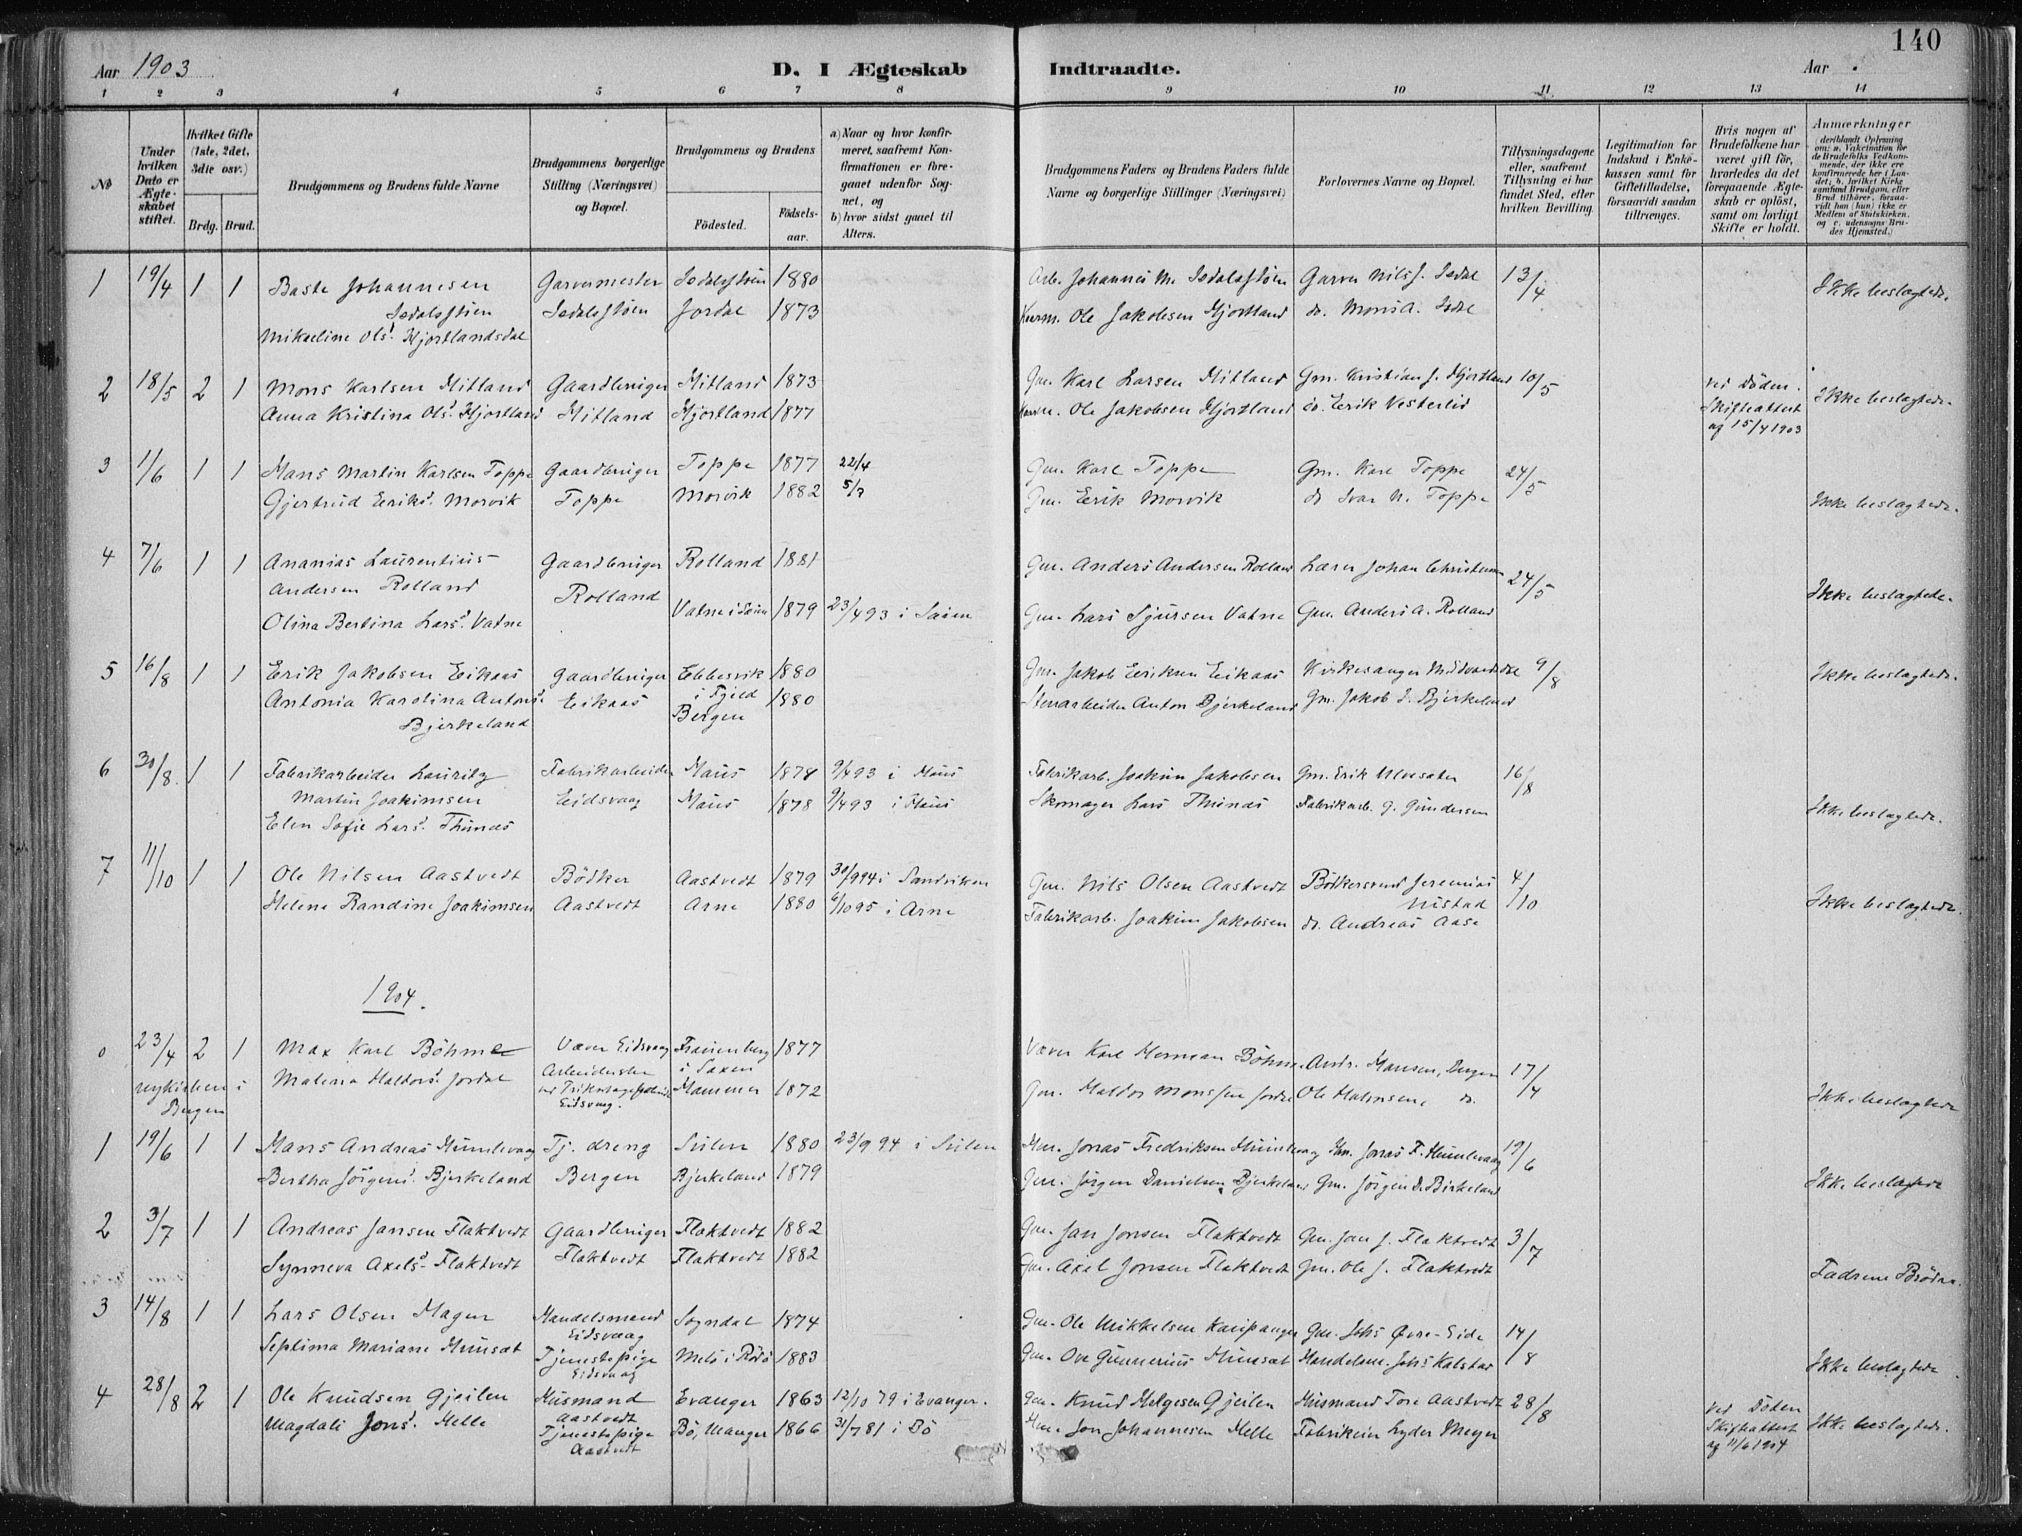 140
Aar 1903
D. I Ægteskab Indtraadte.
Aar
1 2 3 4 5 6 7 8 9 10 11 12 13 14
No
Under hvilken Dato er Ægteskabet stiftet.
Hvilket Gifte (1ste, 2det, 3die osv.)
Brdg. Brud.
Brudgommens og Brudens fulde Navne
Brudgommens borgerlige Stilling (Næringsvei) og Bopæl.
Brudgommens og Brudens
Fødested.
Fødselsaar.
a) Naar og hvor konfirmeret, saafremt Konfirmationen er foregaaet udenfor Sognet, og
b) hvor sidst gaaet til Alters.
Brudgommens Faders og Brudens Faders fulde Navne og borgerlige Stillinger (Næringsvei)
Forlovernes Navne og Bopæl.
Tillysningsdagene eller, saafremt Tillysning ei har fundet Sted, efter hvilken Bevilling.
Legitimation for Indskud i Enkekassen samt for Giftetilladelse, forsaavidt saadan tiltrænges.
Hvis nogen af Brudefolkene har været gift før, hvorledes da det foregaaende Ægteskab er opløst, samt om lovligt Skifte er holdt.
Anmærkninger
1 19/4 1 1 Baste Johannesen Garvermester Isdalstøen 1880 Arb. Johannes M. Isdalstøen Garver Nils J. Isdal 13/4 Ikke beslægtede.
Isdalstøen Isdalstøen Jordal 1873 Ole Jakobsen Hjortland do. Mons A. Isdal
Mikaeline Olsd. Hjortlandsdal
2 18/5 2 1 Mons Karlsen Hitland Gaardbruger Hitland 1873 Gm. Karl Larsen Hitland Gm. Kristian J. Hjortland 10/5 ved Døden. Ikke beslægtede.
Anna Kristina Olsd. Hjortland Hitland Hjortland 1877 Ole Jakobsen Hjortland do. Erik Vesterlid Skifteattest
af 15/4 1903
3 1/6 1 1 Hans Martin Karlsen Toppe Gaardbruger Toppe 1877 22/4 Gm. Karl Toppe Gm. Karl Toppe 24/5
Gjertrud Eriksd. Morvik Toppe Morvik 1882 5/7 Gm. Erik Morvik do Ivar N. Toppe Ikke beslægtede.
4 7/6 1 1 Ananias Laurentius Gaardbruger Rolland 1881 Gm. Anders Andersen Rolland Lærer Johan Christensen 24/5
Andersen Rolland Rolland Ikke beslægtede.
Olina Bertina Larsd. Vatne Vatne i 1879 23/4 93 i Gm. Lars Sjursen Vatne Gm. Anders A. Rolland
5 16/8 1 1 Erik Jakobsen Eikaas Gaardbruger Ebbesvik 1880 Gm. Jakob Eriksen Eikaas Kirkesanger 9/8 Ikke beslægtede.
Antonia Karolina Antonsd. Eikaas i Fjeld 1880 Stenarbeider Anton Bjerkeland Gm. Jakob J. Bjerkeland
Bjerkeland Bergen
6 30/8. 1 1 Fabrikarbeider Lauritz Fabrikarbeider Haus 1878 9/4 93 i Haus Fabrikarb. Joakim Jakobsen Gm. Erik Ulvesæter 16/8
Martin Joakimsen Eidsvaag Haus 1878 9/4 93 i Haus Skomager Lars Thunæs Fabrikarb. G. Gundersen
Elen Sofie Larsd. Thunæs Ikke beslægtede.
7 11/10 1 1 Ole Nilsen Aastvedt Bödker Aastvedt 1879 30/9 94 i Sandviken Gm. Nils Olsen Aastvedt Bödkersvend Jeremias 4/10
Helene Randine Joakimsen Aastvedt Arne 1880 6/10 95 i Arne Fabrikarb. Joakim Jakobsen Nistad Ikke beslægtede.
do. Andreas Aase
1904.
0 23/4 2 1 Max Karl Böhme Væver Eidsvaag Frauenberg 1877 Væver Karl Herman Böhme Andr. Hansen, Bergen 17/4
Nykirken i Malena Haldorsd. Jordal Arbeiderske i Saxen
Bergen ved Trikotagefabrik Hammer 1872 Gm. Haldor Monssen Jordal Ole Halvorsen, do. Ikke beslægtede
Eidsvaag.
1 19/6 1 1 Hans Andreas Humlevaag Tj. dreng Sulen 1880 23/9 94 i Sulen Gm. Jonas Fredriksen Humlevaag Gm. Jonas F. Humlevaag 19/6
Bertha Jörgensd. Bjerkeland Bergen Bjerkeland 1879 Gm. Jörgen Danielsen Bjerkeland Gm. Jörgen D. Birkeland Ikke beslægtede
2 3/7 1 1 Andreas Jansen Flaktvedt Gaardbruger Flaktvedt 1882 Gm. Jan Jonsen Flaktvedt Gm. Jan J. Flaktvedt 3/7
Synneva Axelsd. Flaktvedt Flaktvedt Flaktvedt 1882 Gm. Axel Jonsen Flaktvedt Gm. Ole J. Flaktvedt Fædrene Brödre.
3 14/8 1 1 Lars Olsen Hagen Handelsmand Sogndal 1874 Gm. Ole Mikkelsen Kaupanger Gm. Johs Øvre-Eide 14/8
Eidsvaag
Septima Mariane Hunsæt Tjenestepige Melö i Rödö 1883 Gm. Ove Gunnerius Hunsæt Handelsm. Johs Kalstad Ikke beslægtede.
Eidsvaag
4 28/8 2 1 Ole Knudsen Gjeilen Husmand Evanger 1863 12/10 79 i Evanger. Gm. Knud Helgesen Gjeilen Husmand Tore Aastvedt 28/8 ved Döden
Aastvedt
Magdali Jonsd. Helle Tjenestepige Bö, Manger 1866 31/7 81 i Bö Hm. Jon Johannesen Helle Fabrikeier Lyder Meyer Skifteattest Ikke beslægtede.
Aastvedt af 11/6 1904